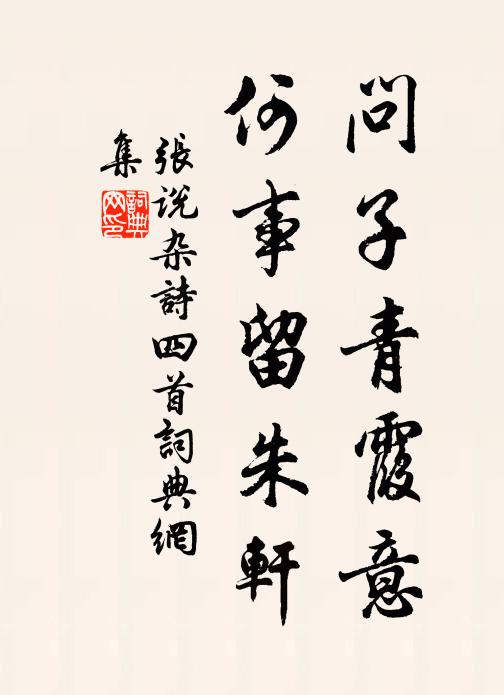 問子青霞意
何事留朱軒
張说杂詩四首詞典網
集
詞典
网印